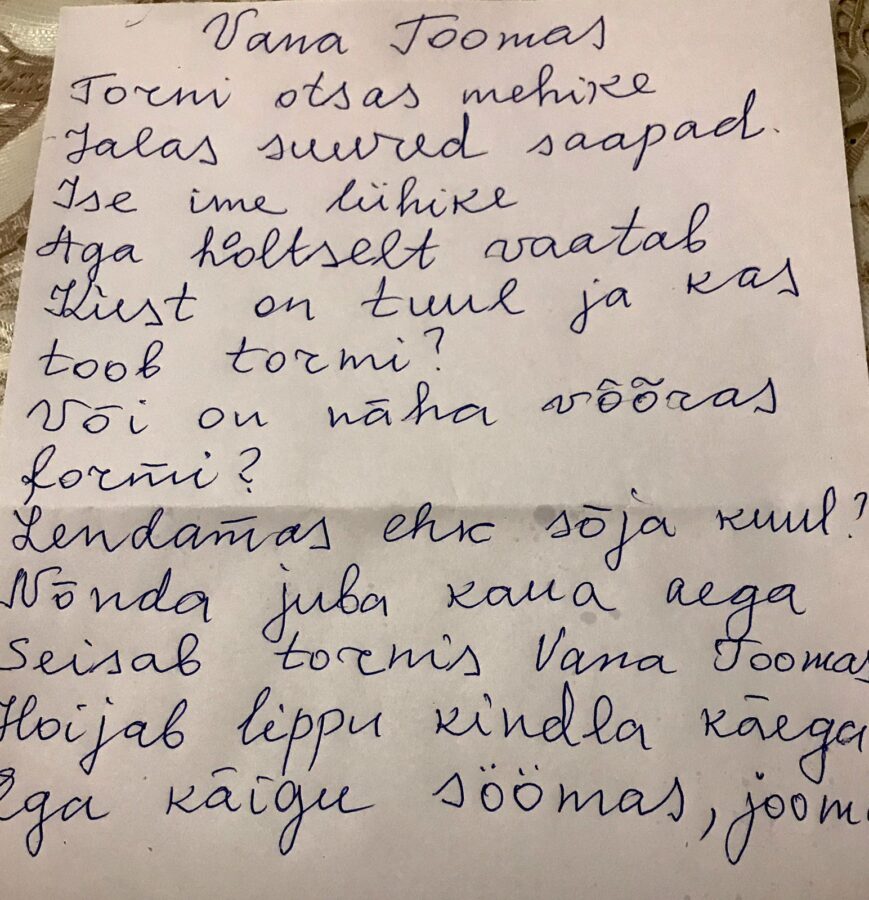 Vana Toomas
Torni otsas mehike
Jalas suured saapad.
Ise ime lühike
Aga holtselt vaatab
Kust on tuul ja kas
toob tormi?
Või on näha võõras
formi?
Lendamas ehk sõja kuul?
Nõnda juba kaua aega
Seisab tornis Vana Toomas
Hoijab lippu kindla käega
Ega käigu söömas, jooma